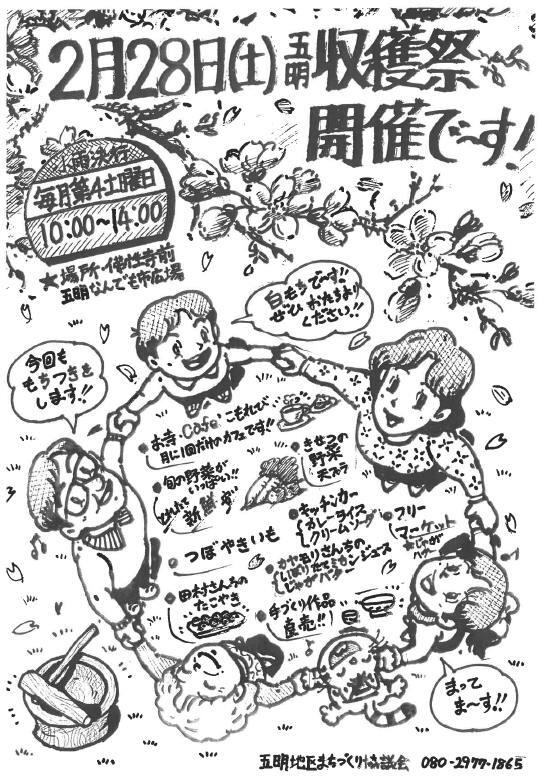 2月28日(土)五明収穫祭
開催で〜す!
小雨決行
毎月第4土曜日
10:00~14:00
★場所・佛性寺前
五明なんでも市広場
白もちで〜す!!
ぜひおたちより
ください!!
今回も
もちつきを
します!!
●お寺.Cafe'こもれび
月に1回だけのカフェです!!
●旬の野菜が
いっぱい!!
とれたて
新鮮
●きせつの
野菜
天プラ
●つぼやきいも
●キッチンカー
カレーライス
クリームソーダ
●フリー
マーケット
●カヤモリさんちの
しぼりたてミカンジュース
じゃがバター
●田村さんちの
たこやき
●手づくり作品
直売!!
まって
ま〜す!!
五明地区まちづくり協議会 080-2977-1865